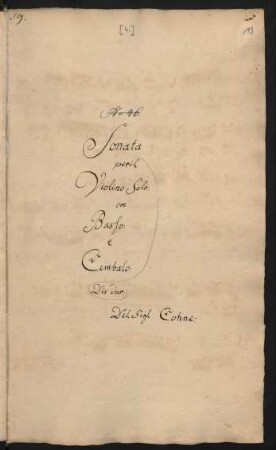 119.
[4]
No 46.
Sonata
per il
Violino Solo
con
Basso
e
Cembalo
Dis dur
Del Sigl Cohne.